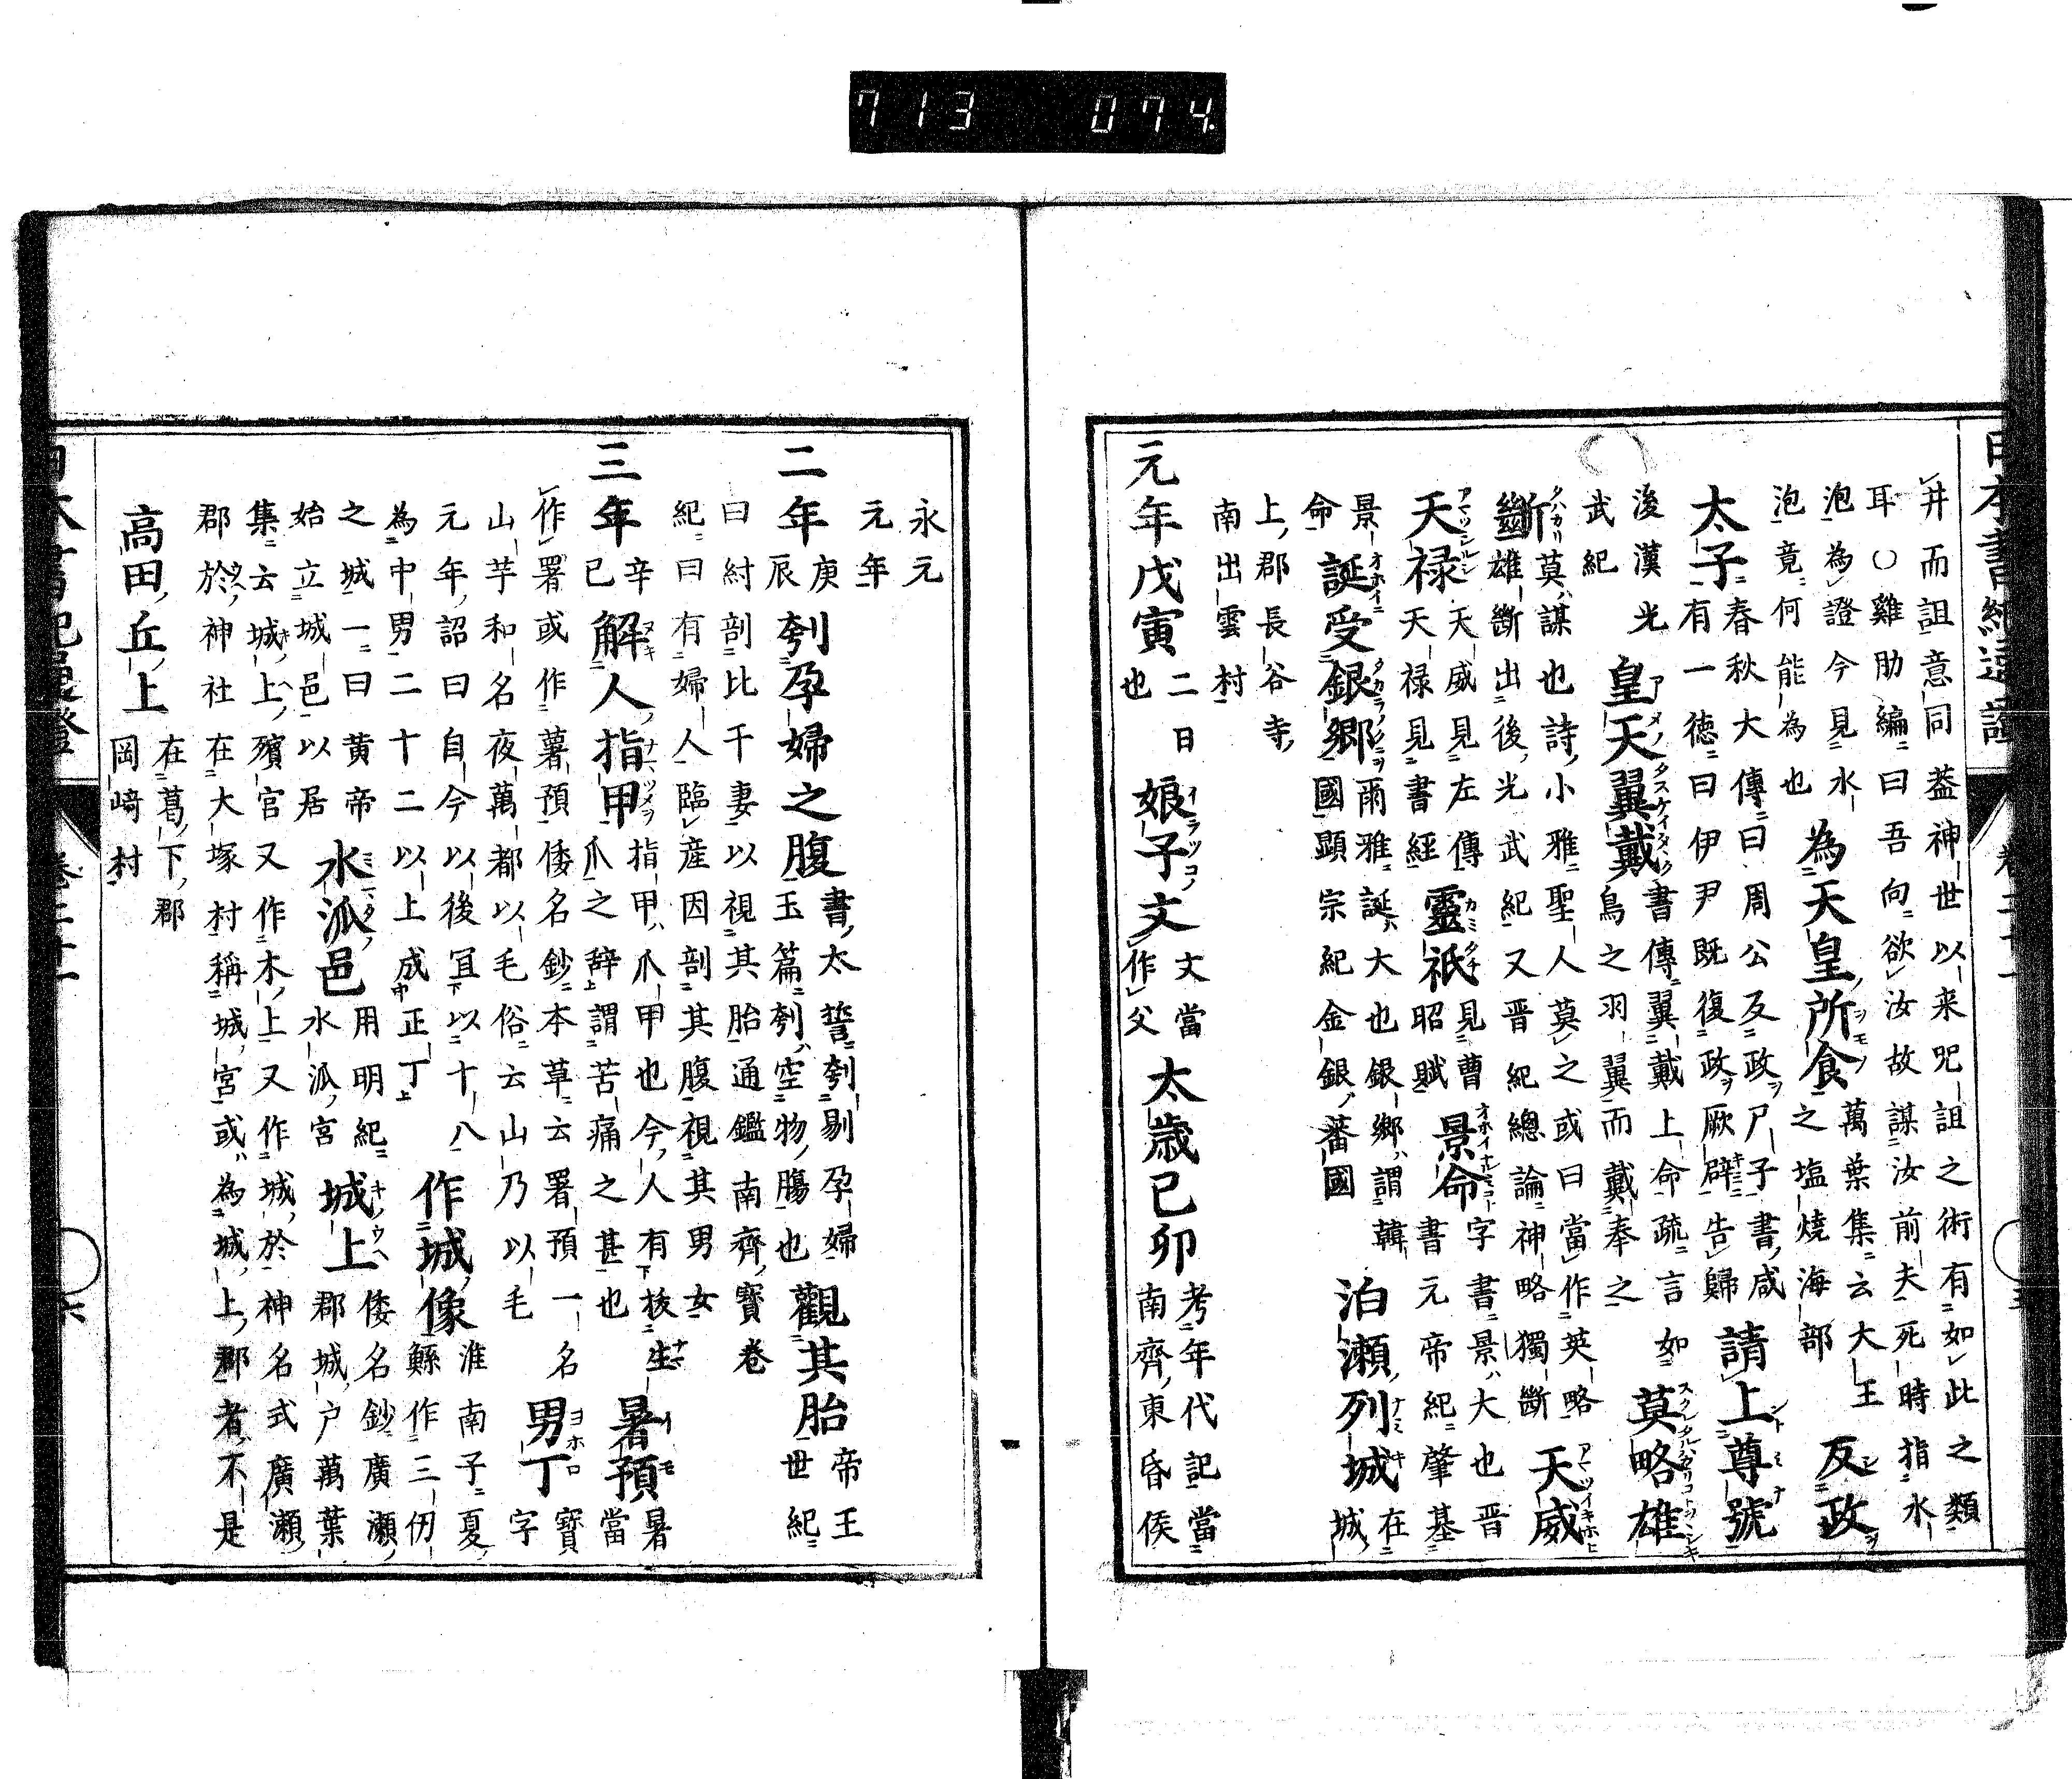 713 074
井而詛意同蓋神世以来呪詛之術有如此之類
耳○雞肋編曰吾向欲汝故謀汝前夫死時指水
泡為證今見水
泡竟何能為也
為天皇所食
萬葉集云大王
之塩焼海部
反政
太子
春秋大傳曰周公反政尸子書咸
有一徳曰伊尹既復政厥辟告歸
請上尊號
後漢光
武紀
皇天翼戴
書傳翼戴上命疏言如
鳥之羽翼而戴奉之
莫略雄
斷
莫謀也詩小雅聖人莫之或曰當作英略
雄斷出後光武紀又晋紀總論神略獨斷
天威
天禄
天威見左傳
天禄見書經
靈祇
見曹
昭賦
景命
字書景大也晋
書元帝紀肇基
景
命
誕受銀郷
爾雅誕大也銀郷謂韓
國顕宗紀金銀蕃國
泊瀬列城
在城
上郡長谷寺
南出雲村
元年戊寅
二日
也
娘子文
文當
作父
太歳己卯
考年代記當
南齊東昏侯
永元
元年
二年
庚
辰
刳孕婦之腹
書太誓刳剔孕婦
玉篇刳空物膓也
觀其胎
帝王
世紀
曰紂剖比干妻以視其胎通鑑南齊寳卷
紀曰有婦人臨産因剖其腹視其男女
三年
辛
巳
解人指甲
指甲爪甲也今人有抜生
爪之辞謂苦痛之甚也
暑預
暑
當
作署或作薯預倭名鈔本草云署預一名
山芋和名夜萬都以毛俗云山乃以毛
男丁
寳
字
元年詔曰自今以後冝以十八
為中男二十二以上成正丁
作城像
淮南子夏
鯀作三仞
之城一曰黄帝
始立城邑以居
水泒邑
用明紀
水泒宮
城上
倭名鈔廣瀬
郡城戸萬葉
集云城上殯宮又作木上又作城於神名式廣瀬
郡於神社在大塚村稱城宮或為城上郡者不是
高田丘上
在葛下郡
岡﨑村